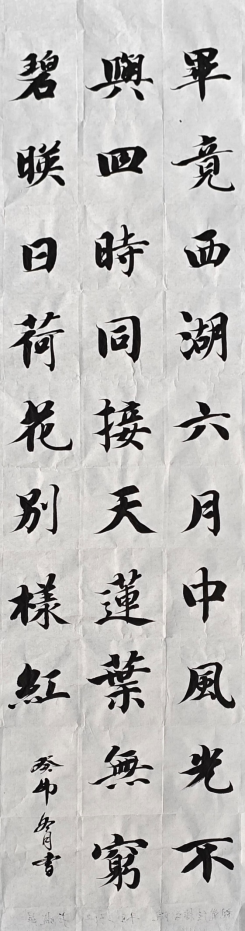 畢竟西湖六月中風光不
與四時同接天蓮葉無窮
碧暎日荷花别樣紅
癸卯冬月書